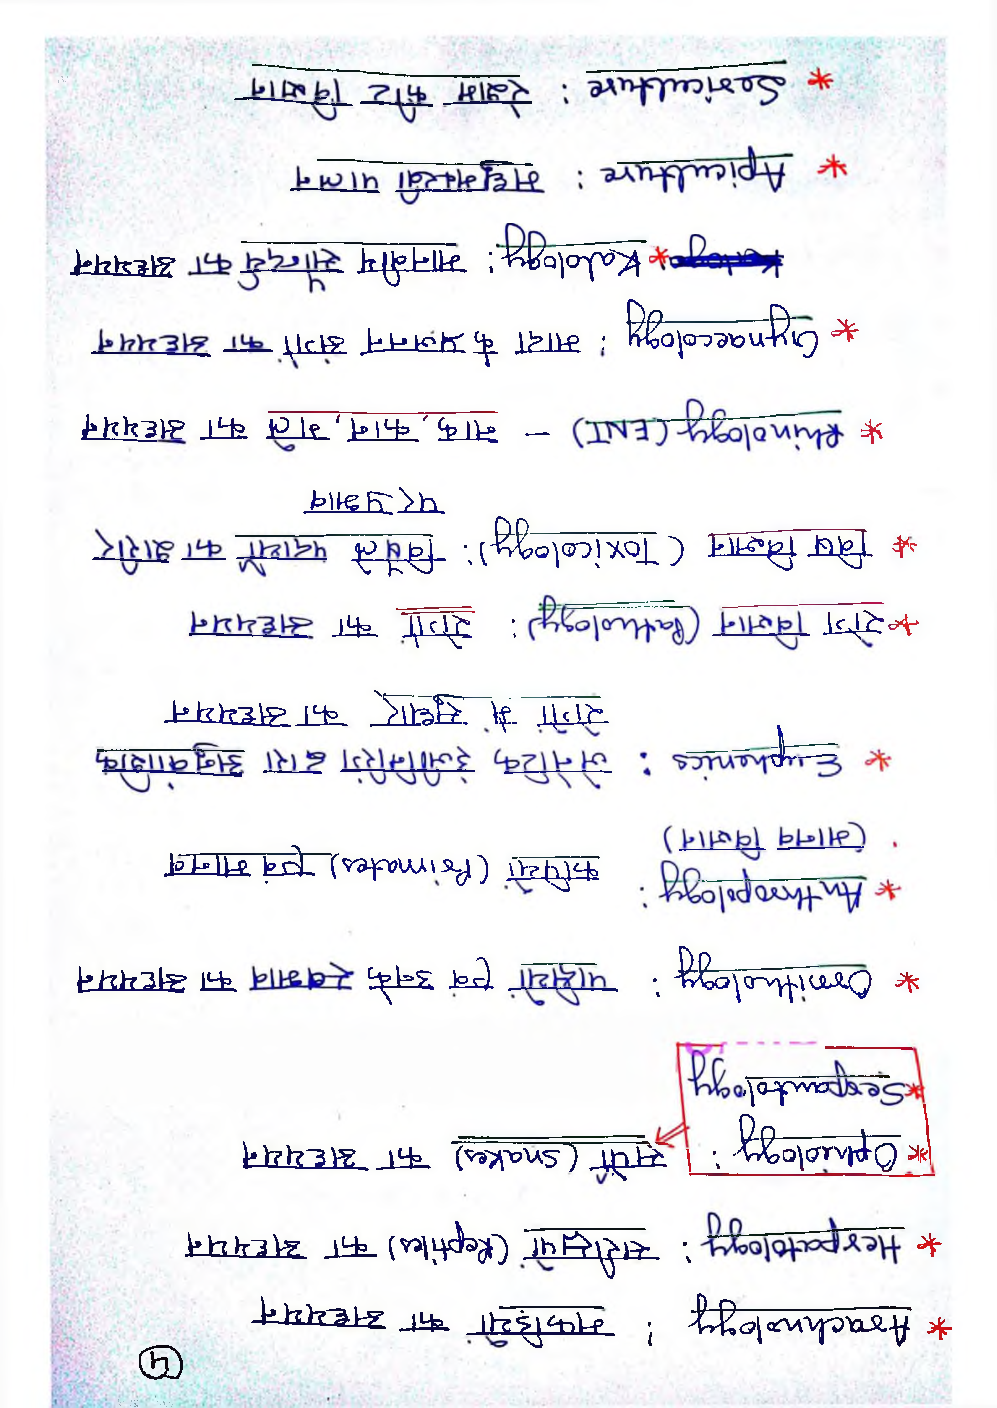 ५
* Arachnology : मकड़ियों का अध्ययन
* Herpatology : सरीसृपों (Reptiles) का अध्ययन
* Ophiology : सर्पों (snakes) का अध्ययन
* Serpantology
* Ornithology : पक्षियों एवं उनके स्वभाव का अध्ययन
* Anthropology : कपियों (Primates) एवं मानव
(मानव विज्ञान)
* Euphenics : जेनेटिक इंजीनियरिंग द्वारा अनुवांशिक
रोगों में सुधार का अध्ययन
* रोग विज्ञान (Pathology) : रोगों का अध्ययन
* विष विज्ञान (Toxicology) : विषैले पदार्थों का शरीर
पर प्रभाव
* Rhinology (ENT) - नाक, कान, गले का अध्ययन
* Gynaecology : मादा के प्रजनन अंगों का अध्ययन
* Kalology : मानवीय सौन्दर्य का अध्ययन
* Apiculture : मधुमक्खी पालन
* Sericulture : रेशम कीट विज्ञान